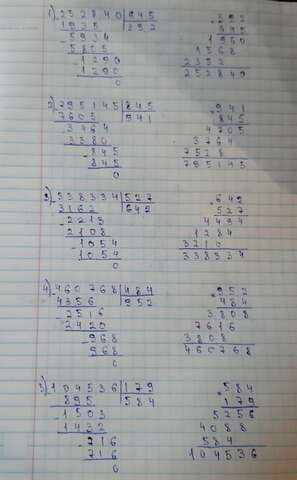 1) 252840 | 645
1935 | 392
- 5934
5805
- 1290
1290
0
× 392
645
1960
1568
2352
252840
2) - 795145 | 845
7605 | 941
- 3464
3380
- 845
845
0
× 941
845
4705
3764
7528
795145
3) - 338334 | 527
3162 | 642
- 2213
2108
- 1054
1054
0
× 642
527
4494
1284
3210
338334
4) - 460768 | 484
4356 | 952
- 2516
2420
- 968
968
0
× 952
484
3808
7616
3808
460768
5) - 104536 | 179
895 | 584
- 1503
1432
- 716
716
0
× 584
179
5256
4088
584
104536